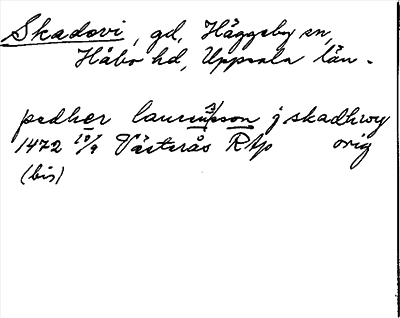 Skadovi, gd, Häggeby sn,
Håbo hd, Uppsala län.
pedher laurensson j skadhwy
1472 10/9 Västerås Rtp orig
(bis)